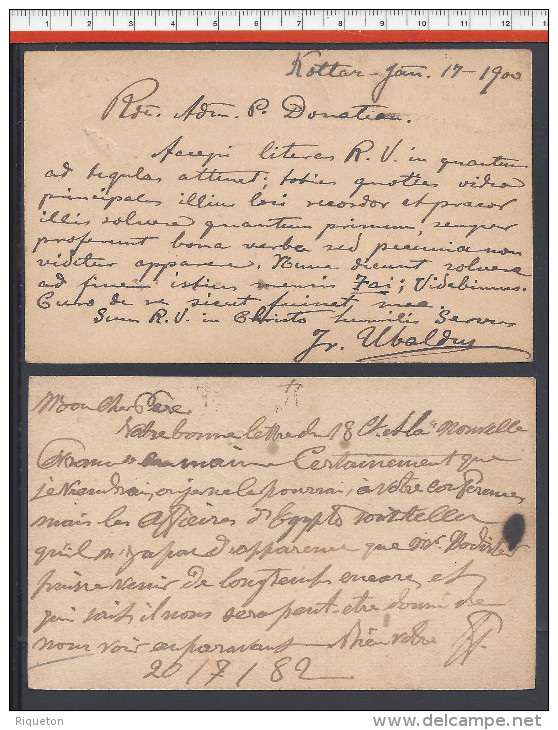 1 2 3 4 5 6 7 8 9 10 11 12
Kottar - Jan. 17 - 1900
Rde. Adm. P. Donatian.
Accepi literas R. V. in quantum
ad regulas attinet; toties quoties video
principales illius loci recordor et precor
illis solvere quantum primum, semper
proferunt bona verba sed pecunia non
videtur apparere. Nunc dicunt solvere
ad finem istius mensis Jai; Videbimus.
Curo de re sicut fuisset mea.
Sum R. V. in Christo humilis Servus
Fr. Ubaldus
Mon cher Père,
Votre bonne lettre du 18 Ct et la Nouvelle
France en main. Certainement que
je viendrai, si je ne le pourrai, à votre conférence,
mais les affaires d'Egypte sont telles
qu'il n'y a pas d'apparence que Mr
puisse venir de longtemps encore, et
qui sait s'il nous sera peut-être donné de
nous voir auparavant Bien votre
20/7/82
Riqueton
www.delcampe.net